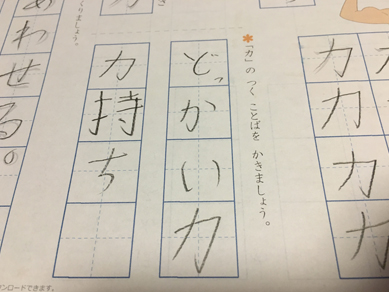 力力力力
「力」の つく ことばを かきましょう。
どっかい力
力持ち
くりましょう。
わせる。
ンロードできます。